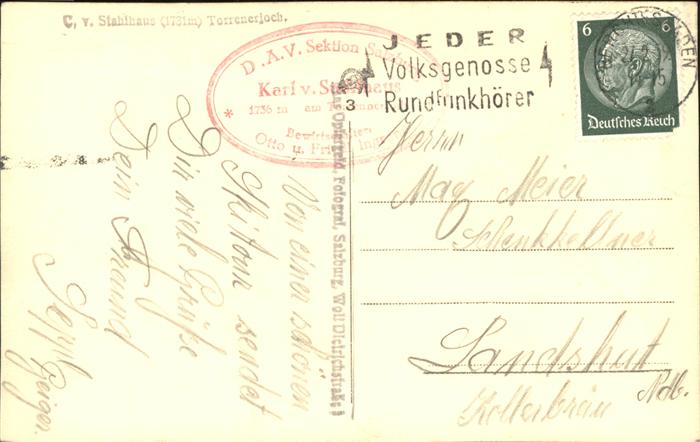 C. v. Stahlhaus (1731m) Torrenerjoch.
D.A.V. Sektion Salzburg
Karl v. Stahlhaus
1736 m am
Bewirtschafter
Otto u.
3
JEDER
Volksgenosse
Rundfunkhörer
6 6
Deutsches Reich
Fotograf, Salzburg, Wolf Dietrichstraße
Von einer schönen
Skitour sendet
Dir viele Grüße
Dein Freund
Sepp
Geiger.
Herrn
Max Meier
Schenkkellner
Landshut
Ndb.
Kollerbräu